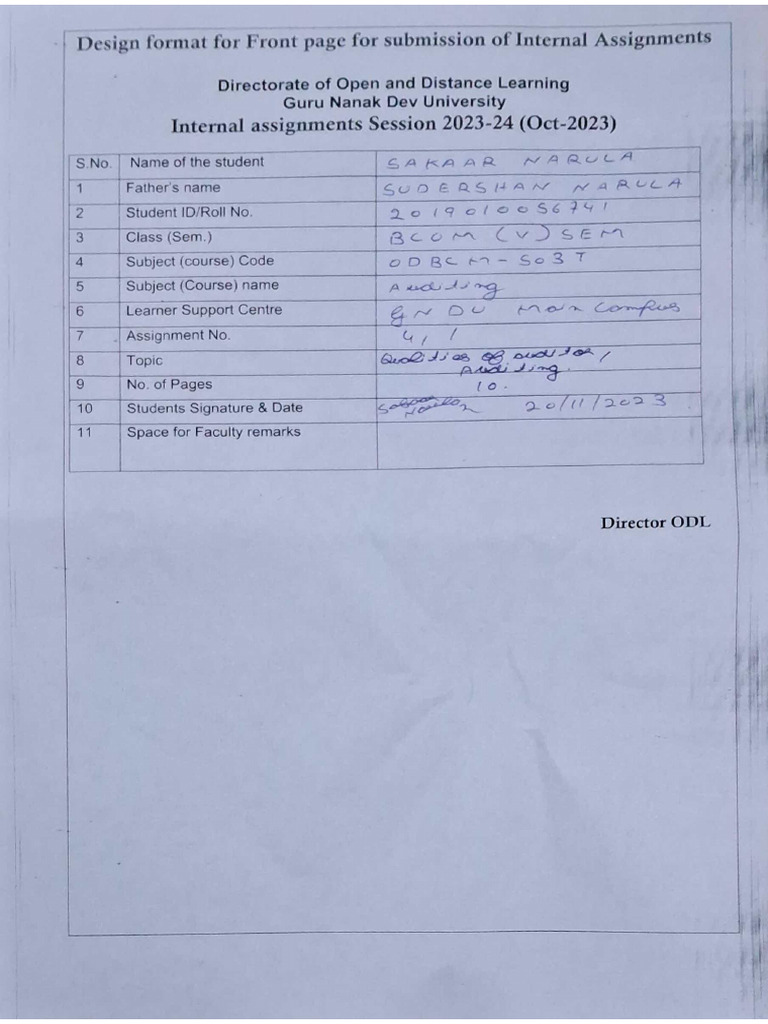 Design format for Front page for submission of Internal Assignments
Directorate of Open and Distance Learning
Guru Nanak Dev University
Internal assignments Session 2023-24 (Oct-2023)
S.No. Name of the student SAKAAR NARULA
1 Father's name SUDERSHAN NARULA
2 Student ID/Roll No. 2019010056741
3 Class (Sem.) BCOM (V) SEM
4 Subject (course) Code ODBCM-503T
5 Subject (Course) name Auditing
6 Learner Support Centre GNDU Main Campus
7 Assignment No. 4, 1
8 Topic Qualities of auditor, Auditing.
9 No. of Pages 10.
10 Students Signature & Date Sakaar Narula 20/11/2023
11 Space for Faculty remarks
Director ODL